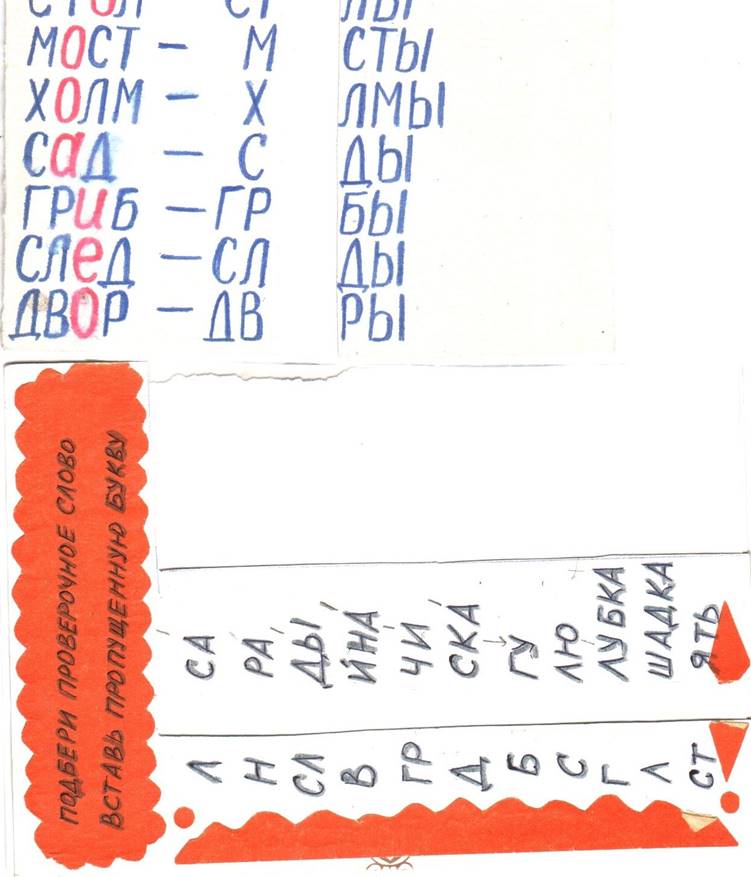 СТОЛ – СТ ЛЫ
МОСТ – М СТЫ
ХОЛМ – Х ЛМЫ
САД – С ДЫ
ГРИБ – ГР БЫ
СЛЕД – СЛ ДЫ
ДВОР – ДВ РЫ
ПОДБЕРИ ПРОВЕРОЧНОЕ СЛОВО
ВСТАВЬ ПРОПУЩЕННУЮ БУКВУ
Л СА
Н РА
СЛ ДЫ
В ЙНА
ГР ЧИ
Д СКА
Б ГУ
С ЛЮ
Г ЛУБКА
Л ШАДКА
СТ ЯТЬ